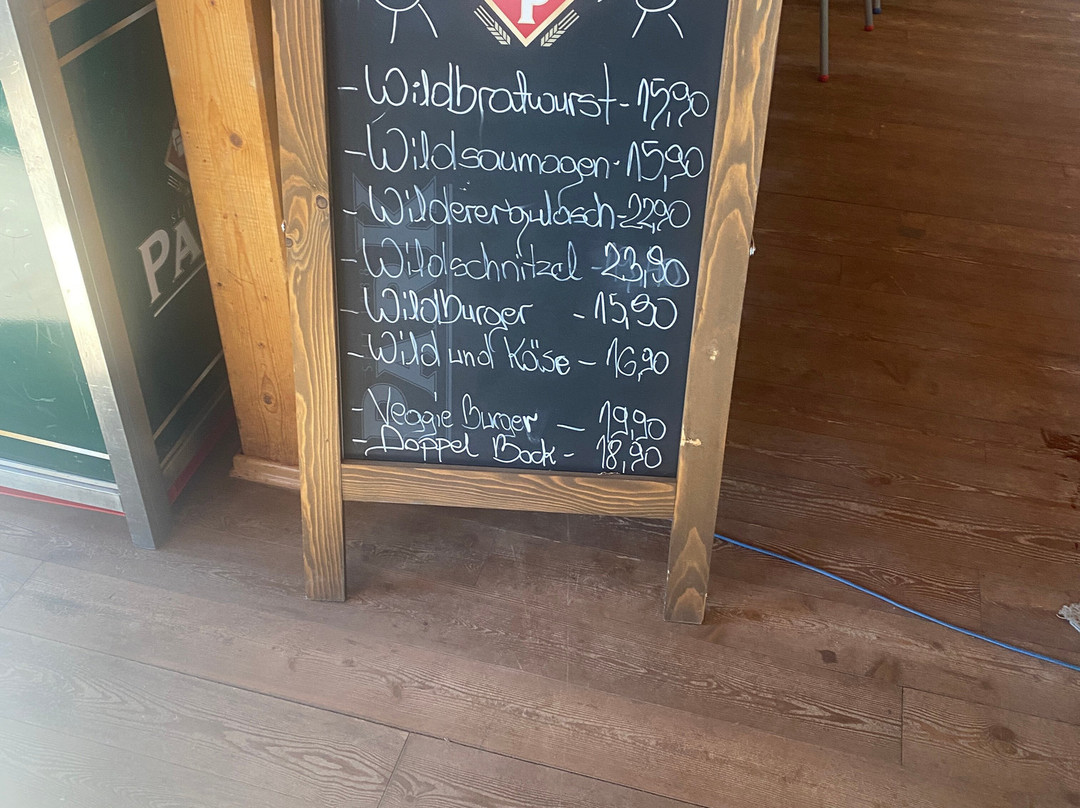 P
- Wildbratwurst - 15,90
- Wildsaumagen - 15,90
- Wilderergulasch - 22,90
- Wildschnitzel - 23,90
- WildBurger - 15,90
- Wild und Käse - 16,90
- Veggie Burger - 19,90
- Doppel Bock - 18,90
PARK
PA